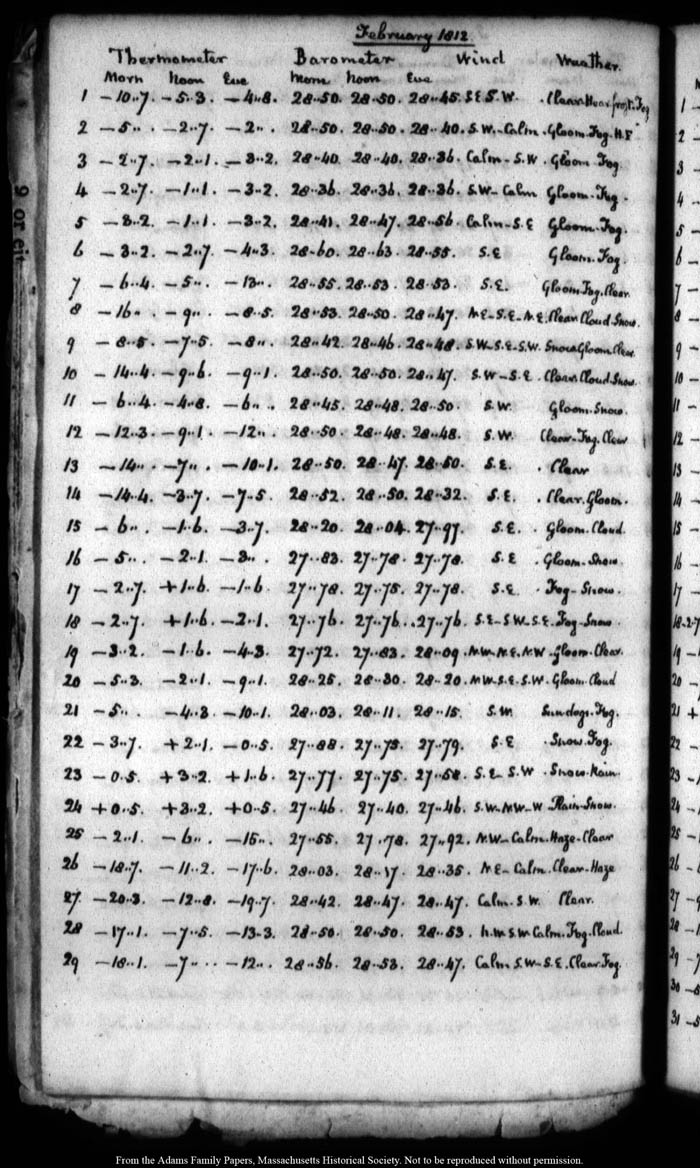 February 1812.
Thermometer Barometer Wind Weather.
Morn Noon Eve Morn Noon Eve
1 -10..7. -5..3. -4..8. 28..50. 28..50. 28..45. S.E S.W. Clear. Hoar frost. Fog
2 -5.. . -2..7. -2.. . 28..50. 28..50. 28..40. S.W.-Calm. Gloom. Fog. H.F
3 -2..7. -2..1. -3..2. 28..40. 28..40. 28..36. Calm-S.W. Gloom Fog.
4 -2..7. -1..1. -3..2. 28..36. 28..36. 28..36. S.W-Calm Gloom. Fog.
5 -3..2. -1..1. -3..2. 28..41. 28..47. 28..56. Calm-S.E Gloom. Fog.
6 -3..2. -2..7. -4..3. 28..60. 28..63. 28..55. S.E Gloom. Fog.
7 -6..4. -5.. . -13.. . 28..55. 28..53. 28..53. S.E. Gloom. Fog. Clear.
8 -16.. . -9.. . -8..5. 28..53. 28..50. 28..47. N.E-S.E-N.E. Clear Cloud Snow.
9 -8..5. -7..5. -8.. . 28..42. 28..46. 28..48. S.W-S.E-S.W. Snow Gloom Clear.
10 -14..4. -9..6. -9..1. 28..50. 28..50. 28..47. S.W-S.E. Clear Cloud. Snow.
11 -6..4. -4..8. -6.. . 28..45. 28..48. 28..50. S.W. Gloom. Snow.
12 -12..3. -9..1. -12.. . 28..50. 28..48. 28..48. S.W. Clear-Fog. Clear
13 -14.. . -7.. . -10..1. 28..50. 28..47. 28..50. S.E. Clear
14 -14..4. -3..7. -7..5. 28..52. 28..50. 28..32. S.E. Clear. Gloom.
15 -6.. . -1..6. -3..7. 28..20. 28..04. 27..97. S.E. Gloom. Cloud.
16 -5.. . -2..1. -3.. . 27..83. 27..78. 27..78. S.E Gloom-Snow.
17 -2..7. +1..6. -1..6. 27..78. 27..75. 27..78. S.E. Fog-Snow.
18 -2..7. +1..6. -2..1. 27..76. 27..76. 27..76. S.E-S.W-S.E. Fog-Snow.
19 -3..2. -1..6. -4..3. 27..72. 27..83. 28..09. N.W-N.E-N.W-Gloom. Clear.
20 -5..3. -2..1. -9..1. 28..25. 28..30. 28..20. N.W-S.E-S.W. Gloom. Cloud
21 -5.. . -4..3. -10..1. 28..03. 28..11. 28..15. S.W. Sun dogs. Fog.
22 -3..7. +2..1. -0..5. 27..88. 27..75. 27..79. S.E Snow. Fog.
23 -0..5. +3..2. +1..6. 27..77. 27..75. 27..58. S.E-S.W. Snow-Rain.
24 +0..5. +3..2. +0..5. 27..46. 27..40. 27..46. S.W-N.W-W-Rain-Snow.
25 -2..1. -6.. . -15.. . 27..55. 27..78. 27..92. N.W-Calm. Haze-Clear
26 -18..7. -11..2. -17..6. 28..03. 28..17. 28..35. N.E-Calm. Clear-Haze
27. -20..3. -12..8. -19..7. 28..42. 28..47. 28..47. Calm-S.W. Clear.
28 -17..1. -7..5. -13..3. 28..50. 28..50. 28..53. N.W S.W Calm. Fog. Cloud.
29 -18..1. -7.. . -12.. . 28..56. 28..53. 28..47. Calm S.W-S.E. Clear Fog.
From the Adams Family Papers, Massachusetts Historical Society. Not to be reproduced without permission.